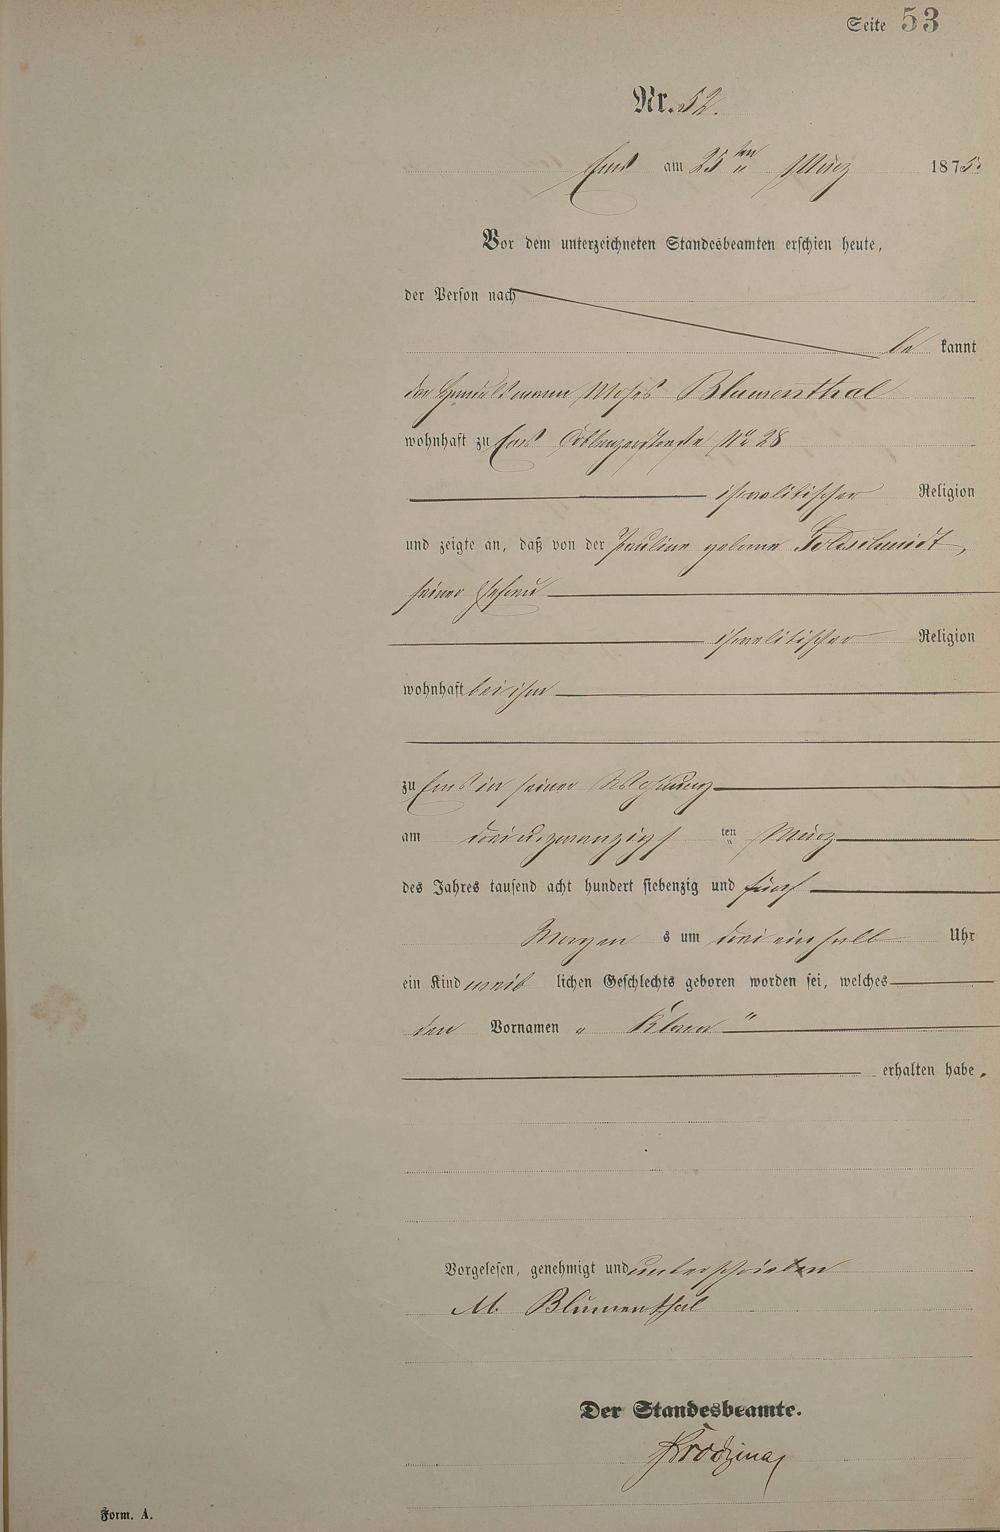 Seite 53
Nr. 52.
Ems am 25ten März 1875.
Vor dem unterzeichneten Standesbeamten erschien heute,
der Person nach
be kannt
der Handelsmann Moses Blumenthal
wohnhaft zu Ems Coblenzerstraße No 28
israelitischer Religion
und zeigte an, daß von der Pauline geborne Goldschmidt,
seiner Ehefrau
israelitischer Religion
wohnhaft bei ihm
zu Ems in seiner Wohnung
am dreiundzwanzigsten März
des Jahres tausend acht hundert siebenzig und fünf
Morgen s um drei einhalb Uhr
ein Kind weib lichen Geschlechts geboren worden sei, welches
den Vornamen „ "
erhalten habe.
Vorgelesen, genehmigt und unterschrieben
M. Blumenthal
Der Standesbeamte.
Form. A.